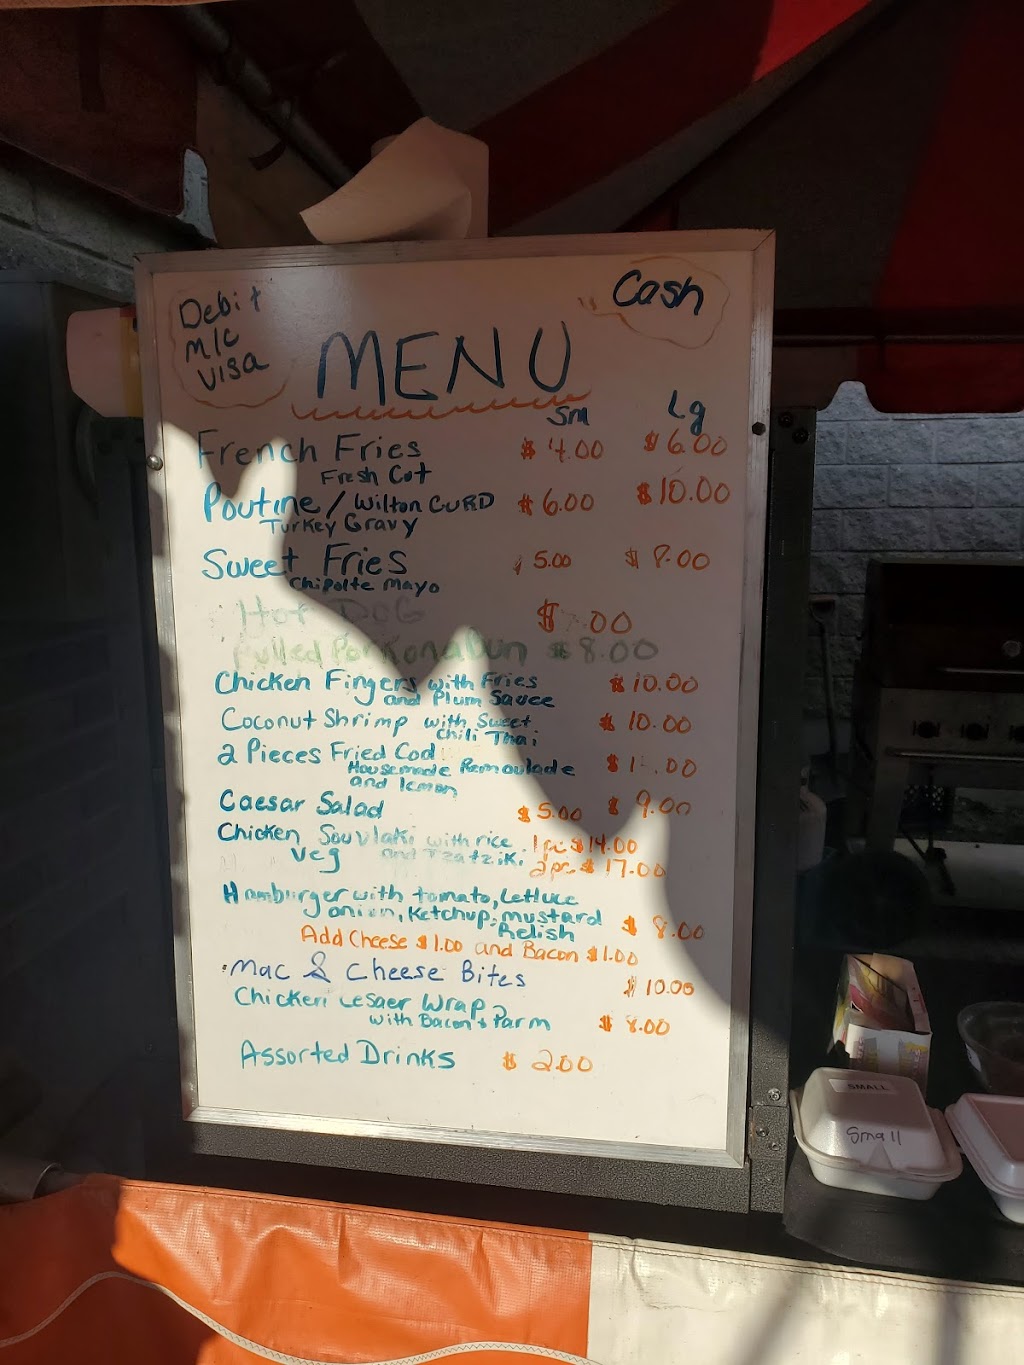 Debit
M/C
VISA
Cash
MENU
Sm Lg
French Fries $4.00 $6.00
Fresh Cut
Poutine / Wilton CURD $6.00 $10.00
Turkey Gravy
Sweet Fries 5.00 $8.00
Chipolte Mayo
Hot DoG $ .00
Pulled Pork on a Bun $8.00
Chicken Fingers with Fries $10.00
and Plum Sauce
Coconut Shrimp with Sweet $10.00
Chili Thai
2 Pieces Fried Cod
Housemade Remoulade
and lemon
Caesar Salad $5.00 $9.00
Chicken Souvlaki with rice 1pc $14.00
Veg and Tzatziki 2pc $17.00
Hamburger with tomato, Lettuce
onion, Ketchup, mustard $8.00
Relish
Add Cheese $1.00 and Bacon $1.00
Mac & Cheese Bites $10.00
Chicken Cesaer Wrap
with Bacon + Parm $8.00
Assorted Drinks $2.00
SMALL
Small